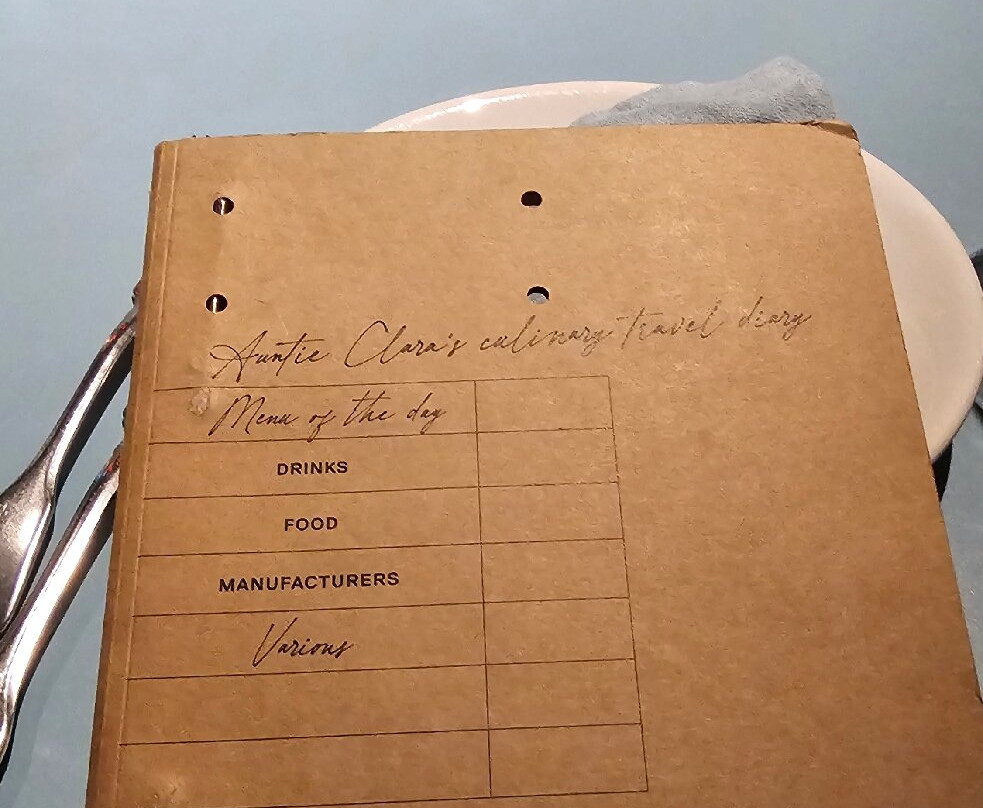 Auntie Clara's culinary travel diary
Menu of the day
DRINKS
FOOD
MANUFACTURERS
Various